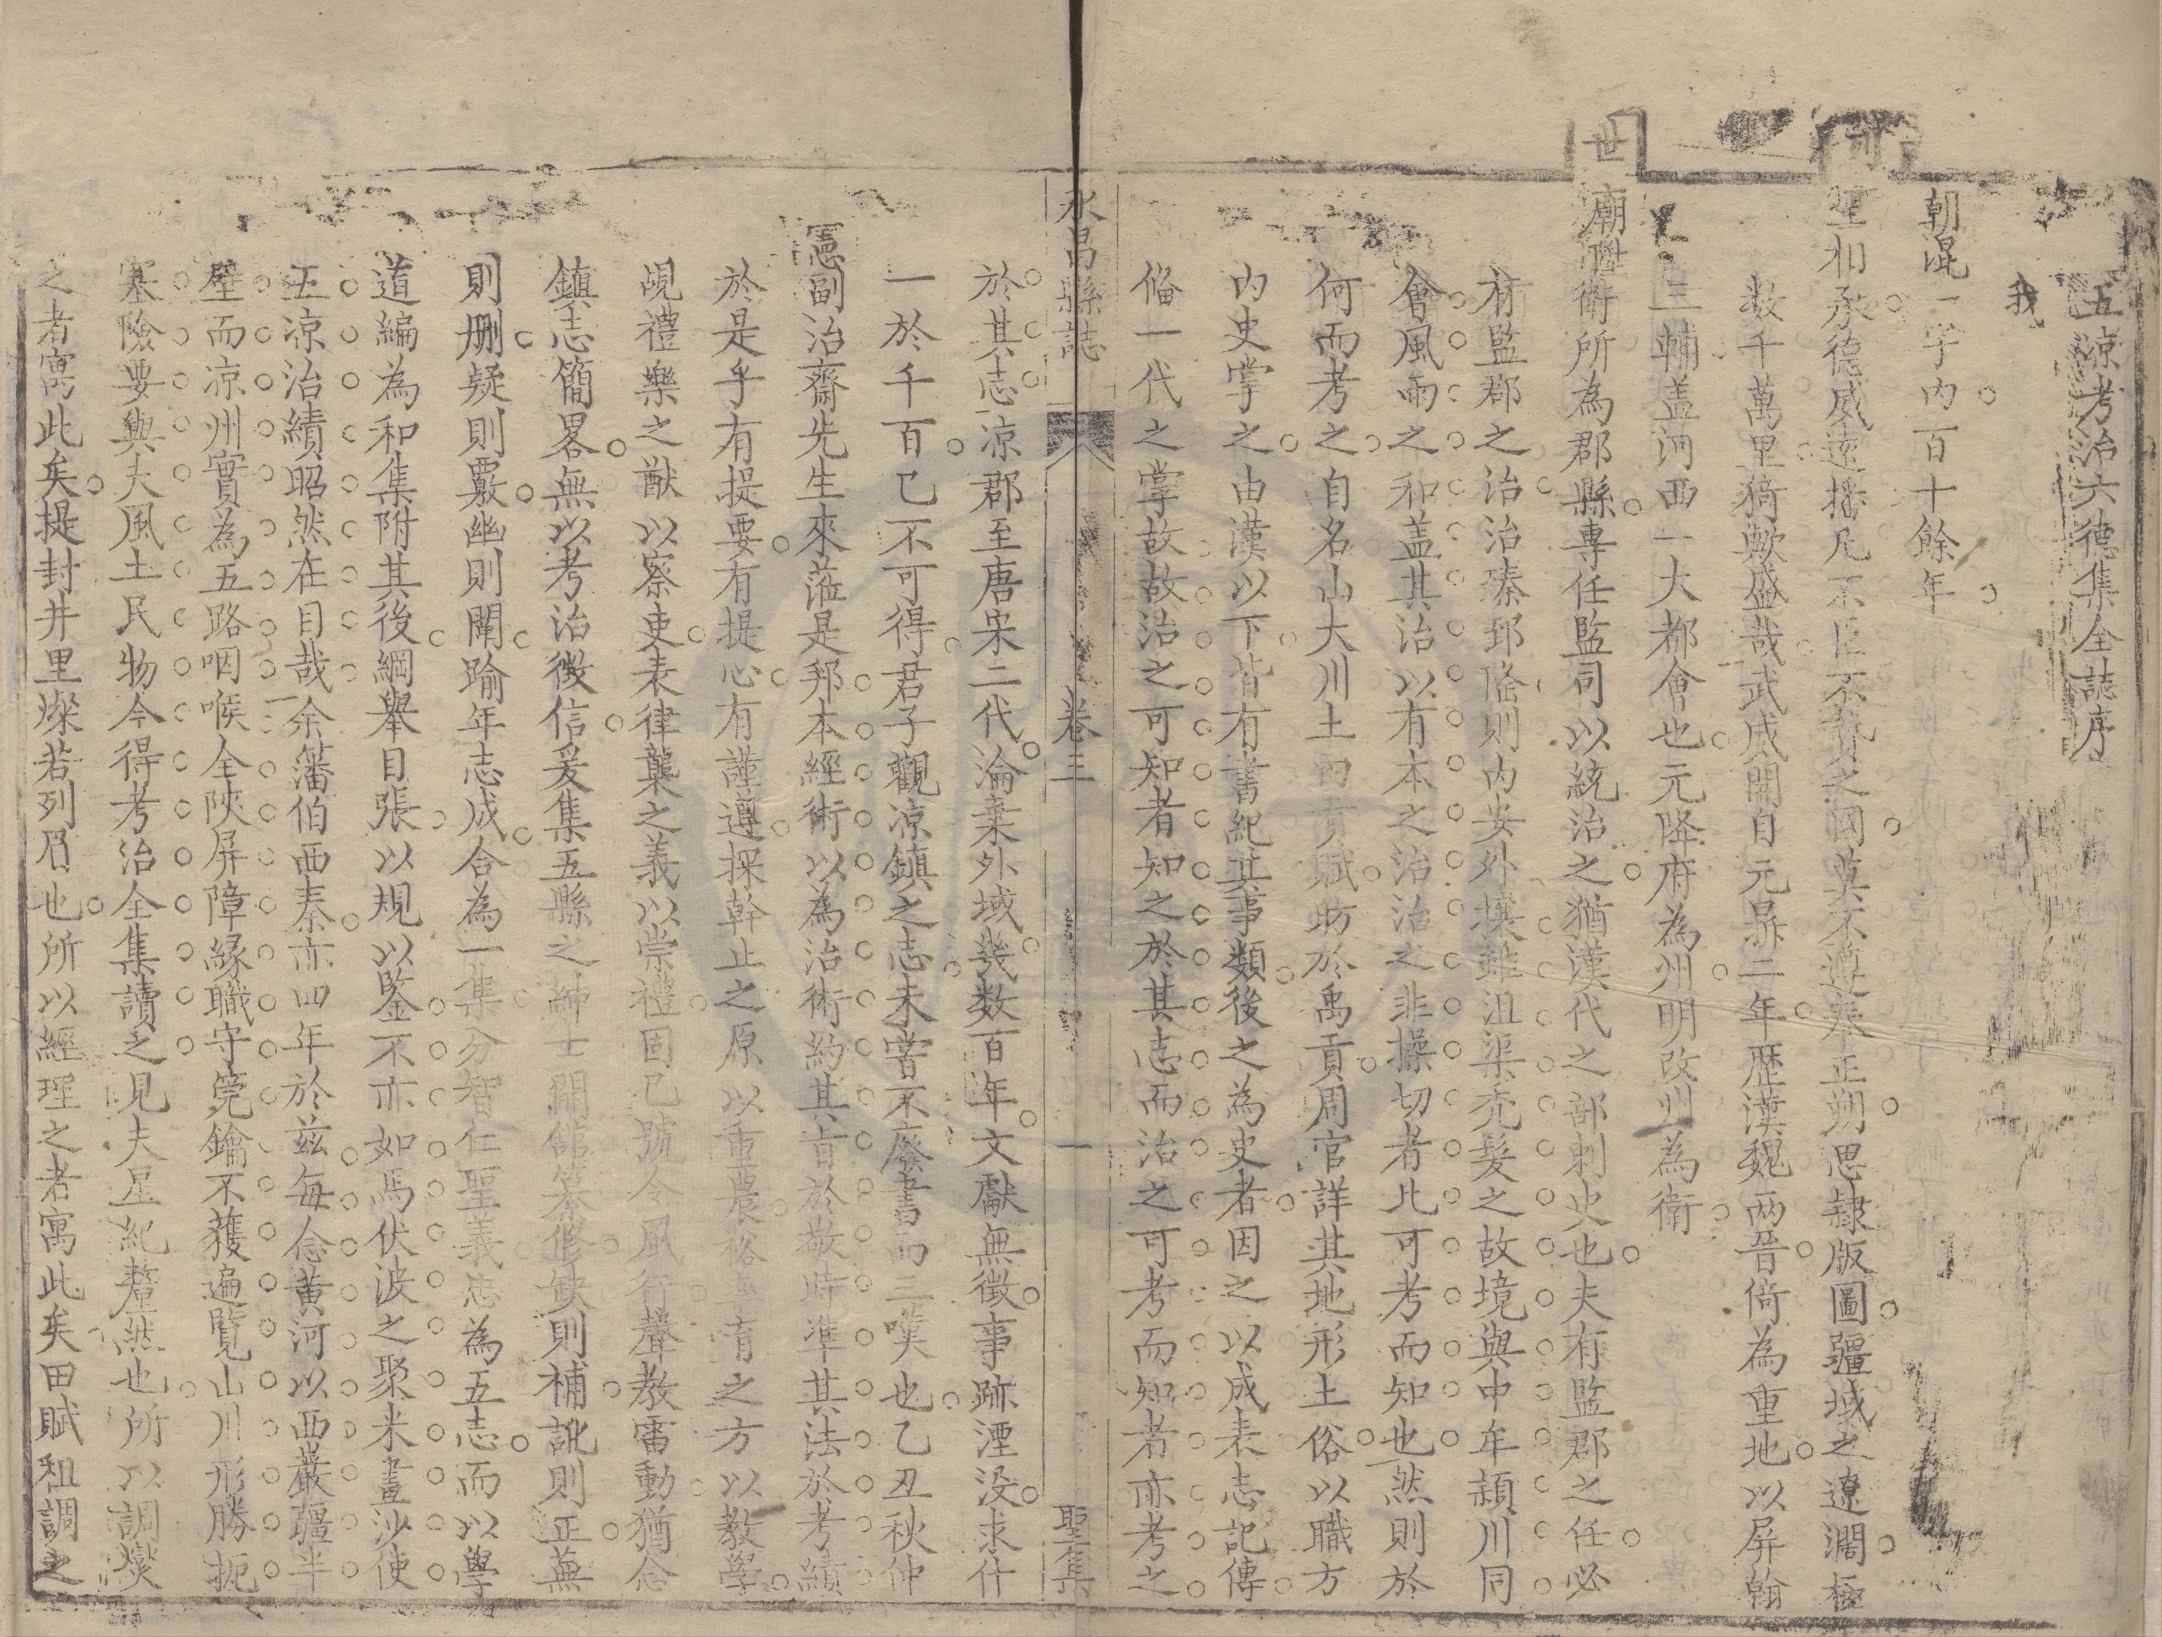 五凉考治六德集全誌序
我
朝混一宇内百十餘年
聖相承德威遠播凡不臣不貢之國莫不遵奉正朔思隸版圖疆域之遼濶極
数千萬里猗歟盛哉武威開自元鼎二年歷漢魏两晉倚為重地以屏翰
三輔盖河西一大都會也元降府為州明改州為衛
世
廟陞衛所為郡縣專任監司以統治之猶漢代之部刺史也夫有監郡之任必
有監郡之治治臻郅隆則内安外攘雖沮渠禿髮之故境與中牟潁川同
會風雨之和盖其治以有本之治治之非操切者比可考而知也然則於
何而考之自名山大川土田貢賦昉於禹貢周官詳其地形土俗以職方
内史掌之由漢以下皆有書紀其事類後之為史者因之以成表志記傳
俻一代之掌故故治之可知者知之於其志而治之可考而知者亦考之
永昌縣誌 卷三 一 聖集
於其志凉郡至唐宋二代淪棄外域幾数百年文獻無徴事跡湮没求什
一於千百已不可得君子觀凉鎮之志未嘗不廢書而三嘆也乙丑秋仲
憲副治齋先生來蒞是邦本經術以為治術約其旨於敬時準其法於考績
於是乎有提要有提心有謹遵探幹止之原以重農務有之方以教學
覘禮樂之猷以察吏表律龔之義以崇禮固已號令風行聲教雷動猶念
鎮志簡畧無以考治徴信爰集五縣之紳士開舘纂修缺則補訛則正蕪
則删疑則覈幽則闡踰年志成合為一集分智仁聖義忠為五志而以學
道編為和集附其後綱舉目張以規以鑒不亦如馬伏波之聚米畫沙使
五凉治績昭然在目哉余藩伯西秦亦四年於兹每念黄河以西巖疆半
壁而凉州實為五路咽喉全陝屏障緣職守筦鑰不獲遍覽山川形勝扼
塞險要與夫風土民物今得考治全集讀之見夫星紀釐然也所以調燮
之者寓此矣提封井里燦若列眉也所以經理之者寓此矣田賦租調之